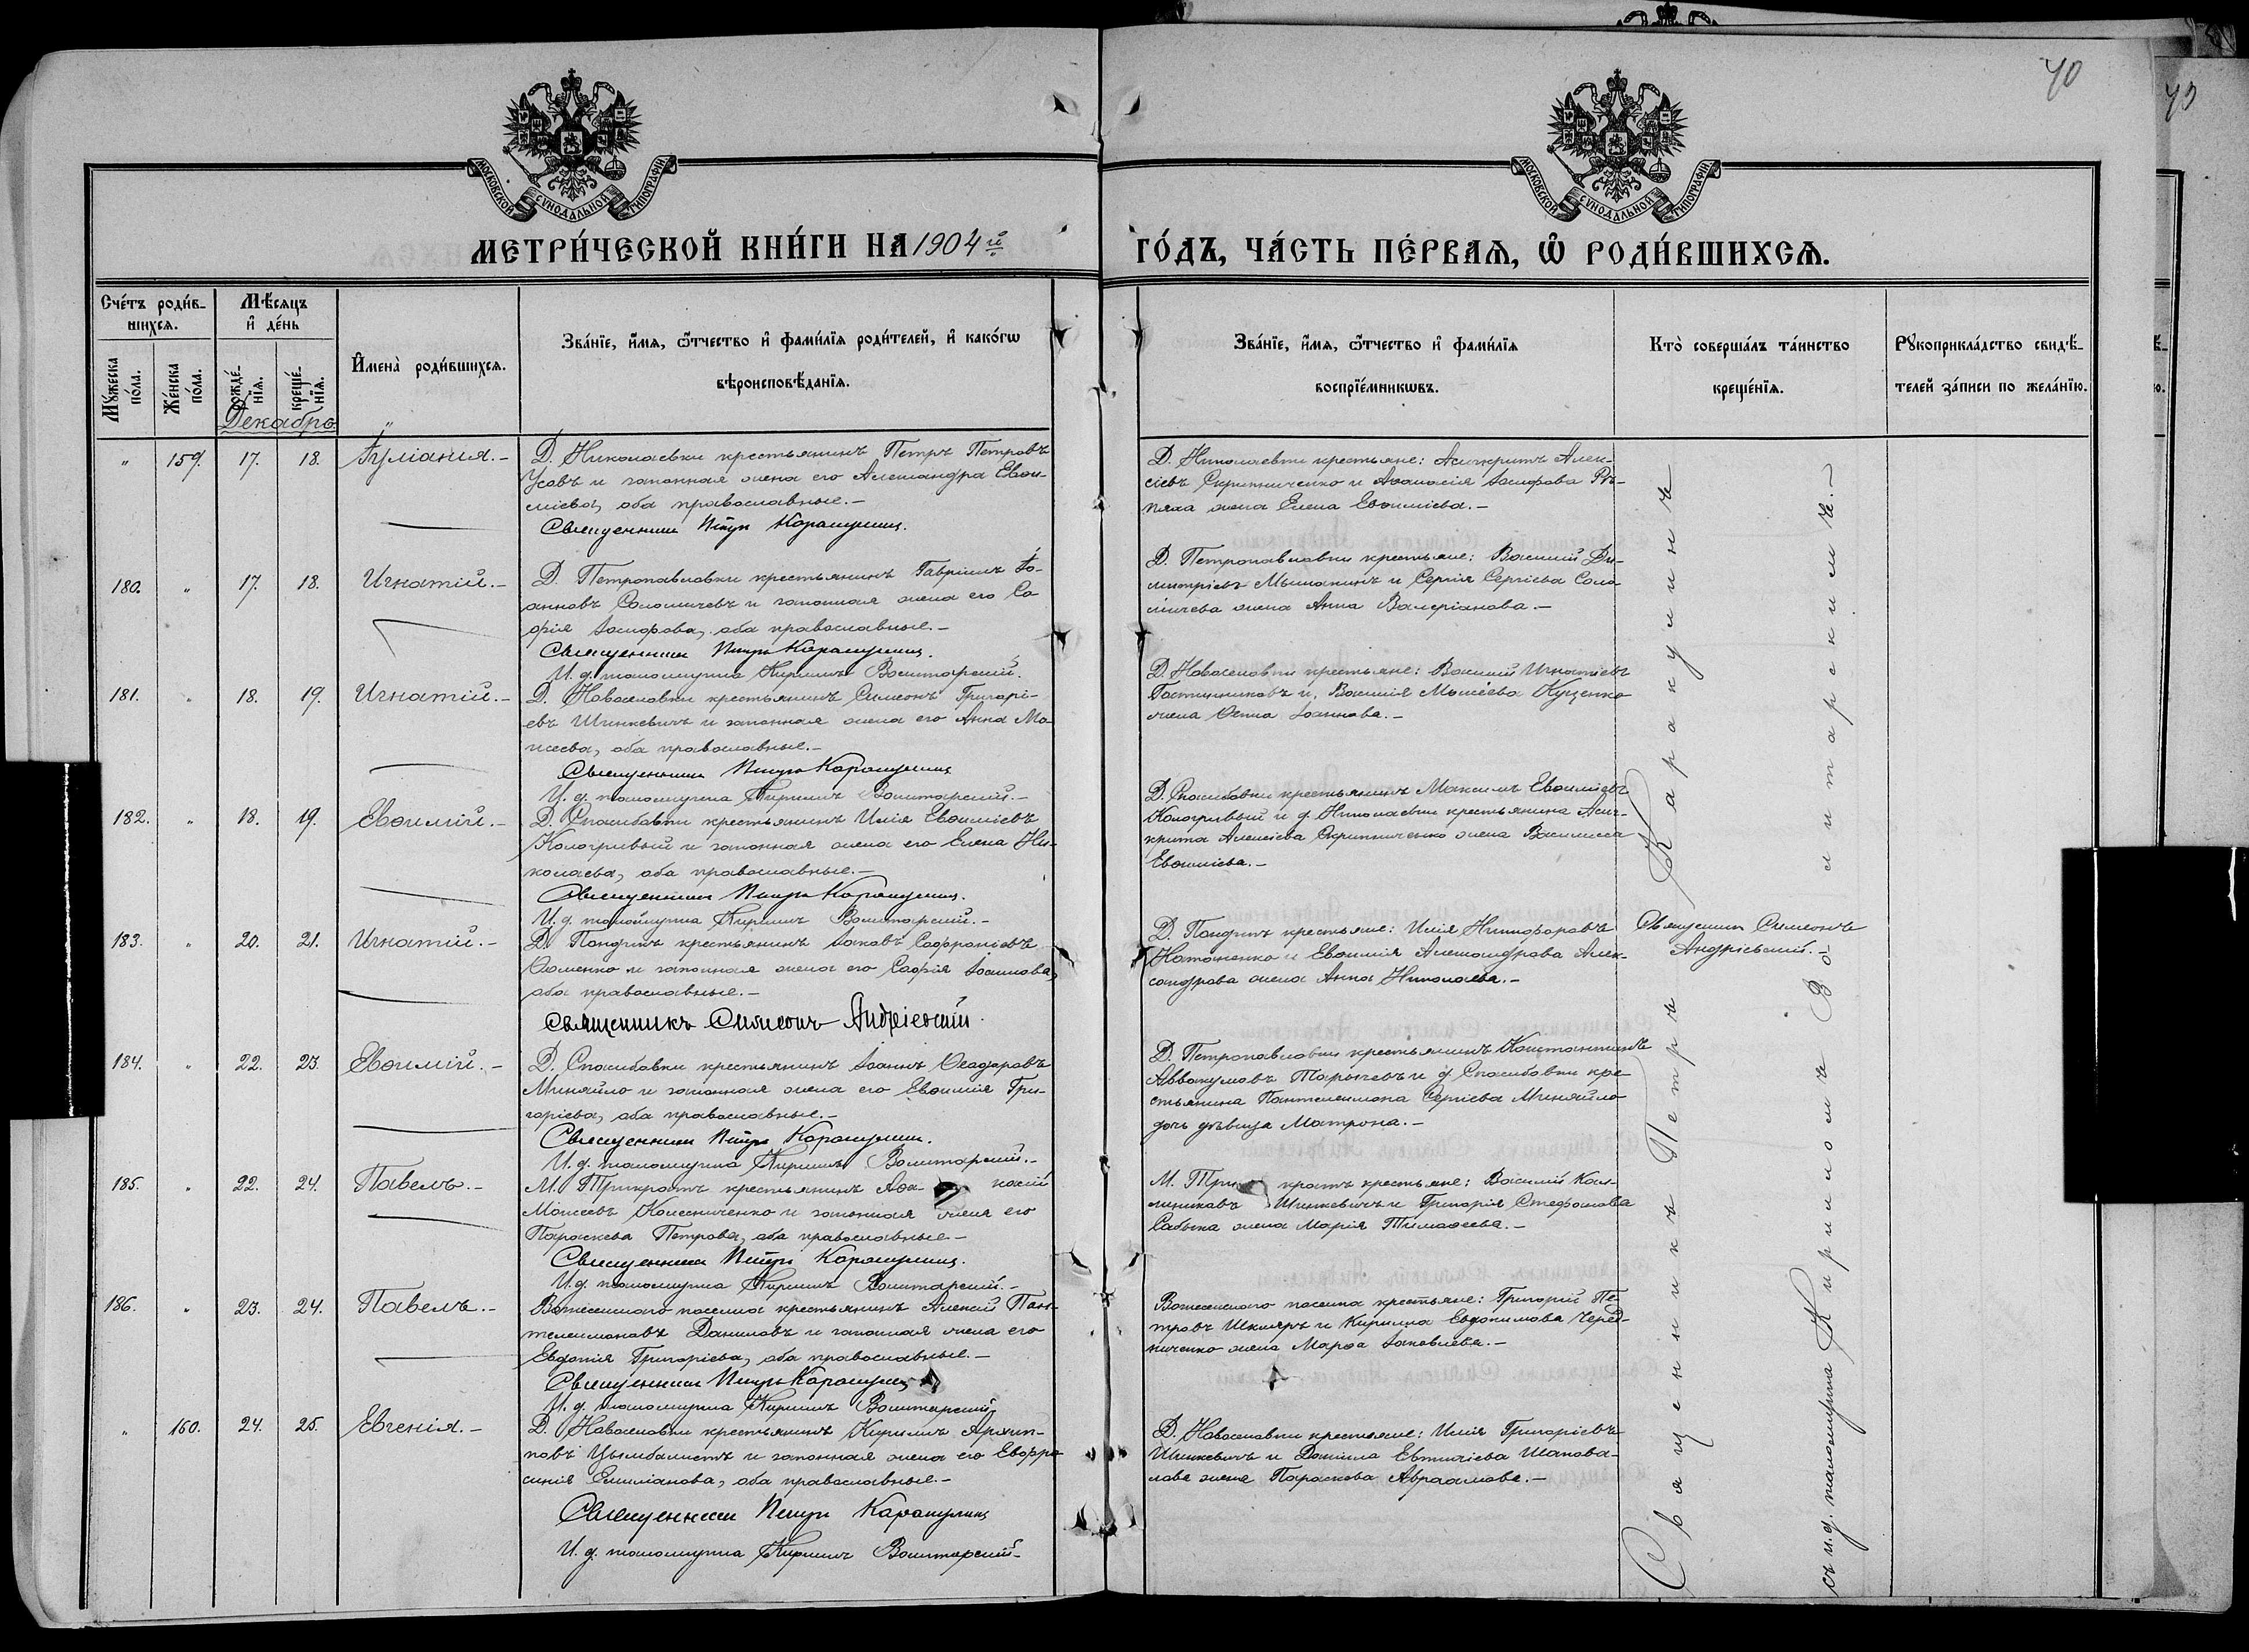 40
40
МОСКОВСКОЙ СѴНОДАЛЬНОЙ ТИПОГРАФІИ
МОСКОВСКОЙ СѴНОДАЛЬНОЙ ТИПОГРАФІИ
МЕТРИ́ЧЕСКОЙ КНИ́ГИ НА 1904й
ГО́ДЪ, ЧА́СТЬ ПЕ́РВАѦ, Ѡ҆ РОДИ́ВШИХСѦ.
Сче́тъ роди́в-
шихсѧ.
Мꙋ́жеска по́ла.
Же́нска по́ла.
Мѣ́сѧцъ
и҆ де́нь
рожде́-
нїѧ.
креще́-
нїѧ.
Декабрь
И҆мена̀ роди́вшихсѧ.
Зва́нїе, и҆́мѧ, ѻ҆́тчество и҆ фами́лїѧ роди́телей, и҆ како́гѡ
вѣроисповѣ́данїѧ.
Зва́нїе, и҆́мѧ, ѻ҆́тчество и҆ фами́лїѧ
воспрїе́мникѡвъ.
Кто̀ соверша́лъ та́инство
креще́нїѧ.
Рꙋкоприкла́дство свидѣ́-
телей за́писи по жела́нїю.
" 159. 17. 18. Іуліанія.-
Д. Николаевки крестьянинъ Петръ Петровъ
Усовъ и законная жена его Александра Евѳи-
міева, оба православные.-
Священникъ Петръ Каракулинъ.
Д. Николаевки крестьяне: Асинкритъ Алек-
сіевъ Скрипниченко и Аѳанасія Іосифова Рѣ-
пяха жена Елена Евѳиміева.-
180. " 17. 18. Игнатій.-
Д. Петропавловки крестьянинъ Гавріилъ Іо-
анновъ Соломичевъ и законная жена его Со-
фія Іосифова, оба православные.-
Священникъ Петръ Каракулинъ.
И. д. псаломщика Кириллъ Волитарскій.
Д. Петропавловки крестьяне: Василій Ди-
митріевъ Мышакинъ и Сергія Сергіева Соло-
мичева жена Анна Валеріанова.-
181. " 18. 19. Игнатій.-
Д. Новоселовки крестьянинъ Симеонъ Григорі-
евъ Шинкевичъ и законная жена его Анна Мо-
исеева, оба православные.-
Священникъ Петръ Каракулинъ
И. д. псаломщика Кириллъ Волитарскій.-
Д. Новоселовки крестьяне: Василій Игнатіевъ
Гостинниковъ и Василія Моисеева Куценко
жена Іоаннова.-
182. " 18. 19. Евѳимій.-
Д. Спасибовки крестьянинъ Илія Евѳиміевъ
Кологривый и законная жена его Елена Ни-
колаева, оба православные.-
Священникъ Петръ Каракулинъ.
И. д. псаломщика Кириллъ Волитарскій.-
Д. Спасибовки крестьянинъ Максимъ Евѳиміевъ
Кологривый и д. Николаевки крестьянина Асин-
крита Алексіева Скрипниченко жена Василисса
Евѳиміева.-
183. " 20. 21. Игнатій.-
Д. Пондикъ крестьянинъ Іаковъ Софроніевъ
Ѳоменко и законная жена его Софія Іоаннова,
оба православные.-
Священникъ Симеонъ Андріевскій.
Д. Пондикъ крестьяне: Илія Никифоровъ
и Евѳимія Александрова Алек-
сандрова жена Анна Николаева.-
Священникъ Симеонъ
Андріевскій.-
184. " 22. 23. Евѳимій.-
Д. Спасибовки крестьянинъ Іоаннъ Ѳеодоровъ
Миняйло и законная жена его Евѳимія Гри-
горіева, оба православные.-
Священникъ Петръ Каракулинъ.
И. д. псаломщика Кириллъ Волитарскій.-
Д. Петропавловки крестьянинъ Константинъ
Аввакумовъ Торычевъ и д. Спасибовки кре-
стьянина Пантелеимона Сергіева Миняйло
дочь дѣвица Матрона.-
185. " 22. 24. Павелъ.-
М. Трикратъ крестьянинъ Аѳа- насій
Моисеевъ Колесниченко и законная жена его
Параскева Петрова, оба православные-
Священникъ Петръ Каракулинъ.
И. д. псаломщика Кириллъ Волитарскій.-
М. Три кратъ крестьяне: Василій Кал-
линиковъ Шинкевичъ и Григорія Стефанова
Собына жена Марія Тимоѳеева.-
186. " 23. 24. Павелъ.-
Вознесенского поселка крестьянинъ Алексій Пан-
телеимоновъ Даниловъ и законная жена его
Евдокія Григоріева, оба православные.-
Священникъ Петръ Каракулинъ
И. д. псаломщика Кириллъ Волитарскій
Вознесенскаго поселка крестьяне: Григорій Пе-
тровъ Шкляръ и Кирилла Евдокимова Черед-
ниченко жена Марѳа Іаковлева.-
" 160. 24. 25. Евгенія.-
Д. Новоселовки крестьянинъ Кириллъ Архип-
повъ Цымбалистъ и законная жена его Евфро-
синія Емиліанова, оба православные.-
Священникъ Петръ Каракулинъ
И. д. псаломщика Кириллъ Волитарскій-
Д. Новоселовки крестьяне: Илія Григоріевъ
Шинкевичъ и Даніила Евтихіева Шапова-
лова жена Параскева Авраамова.-
Священникъ Петръ Каракулинъ
съ и. д. псаломщика Кирилломъ Волитарскимъ.-